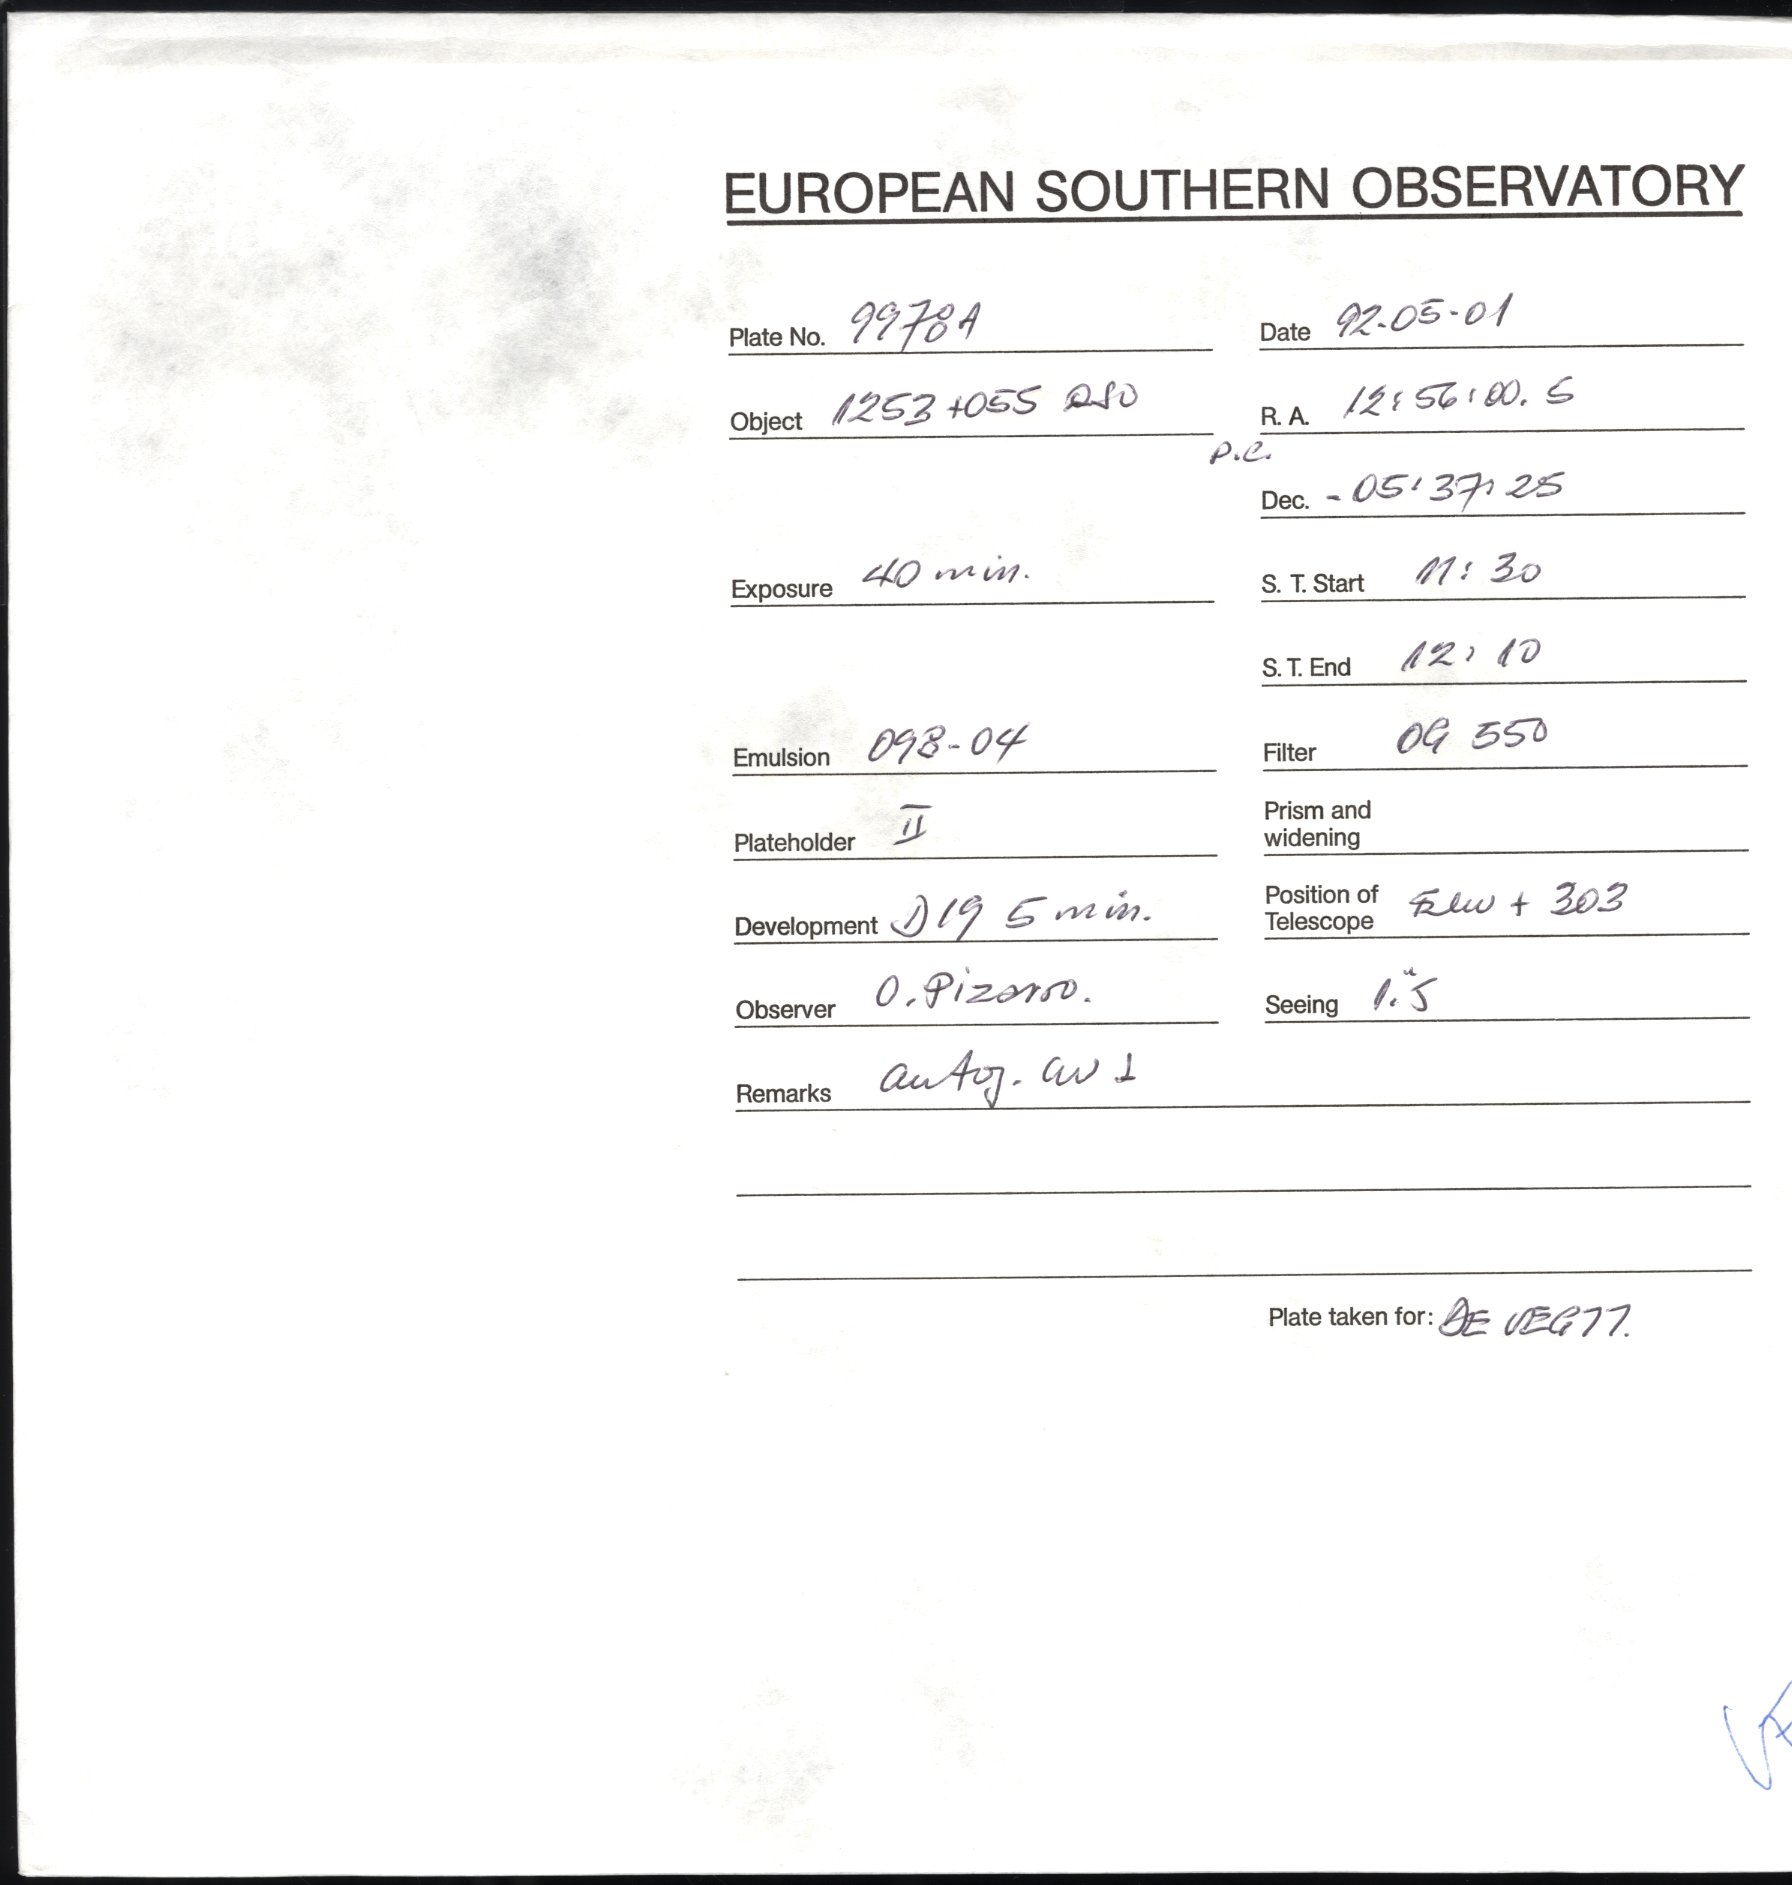 EUROPEAN SOUTHERN OBSERVATORY
Plate No. 9978A
Date 92-05-01
Object 1253+055 QSO
R. A. 12:56:00.5
P.C.
Dec. -05:37:25
Exposure 40 min.
S. T. Start 11:30
S. T. End 12:10
Emulsion 098-04
Filter OG 550
Plateholder II
Prism and
widening
Development D19 5 min.
Position of
Telescope + 303
Observer O. Pizarro.
Seeing 1."5
Remarks autog.
Plate taken for: DE VEGTT.